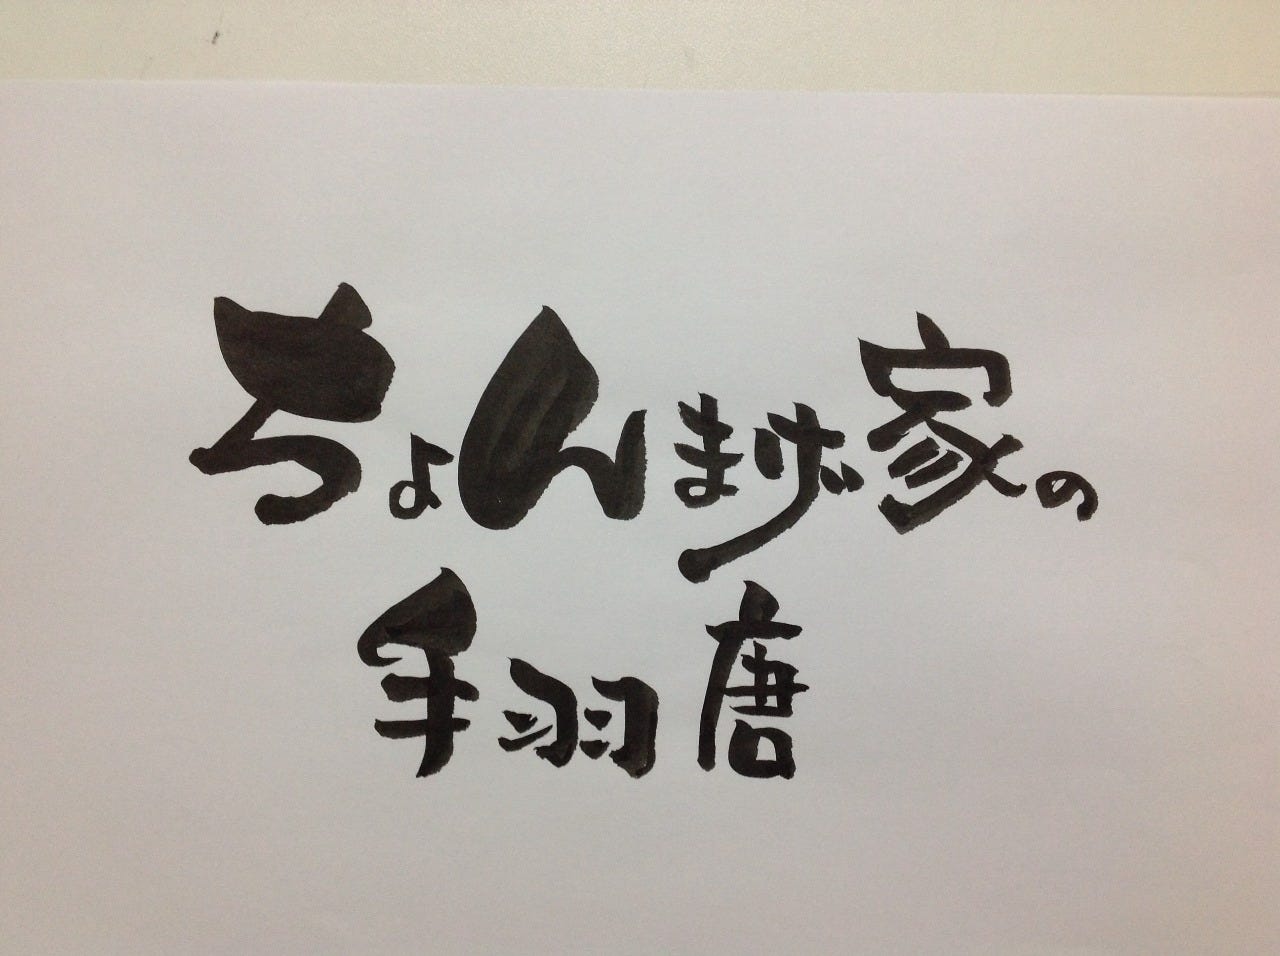 ちょんまげ家の
手羽唐